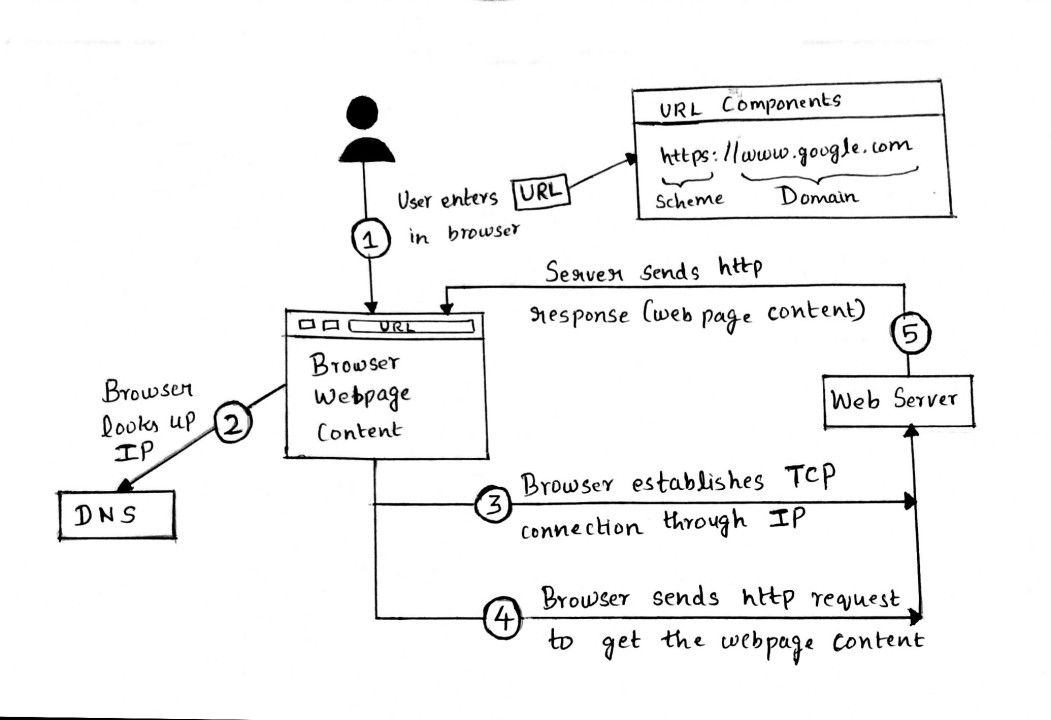 URL Components
https://www.google.com
Scheme Domain
User enters URL
in browser
1
Server sends http
response (web page content)
5
URL
Browser
Webpage
Content
Web Server
Browser
looks up
IP
2
DNS
3
Browser establishes TCP
connection through IP
4
Browser sends http request
to get the webpage content